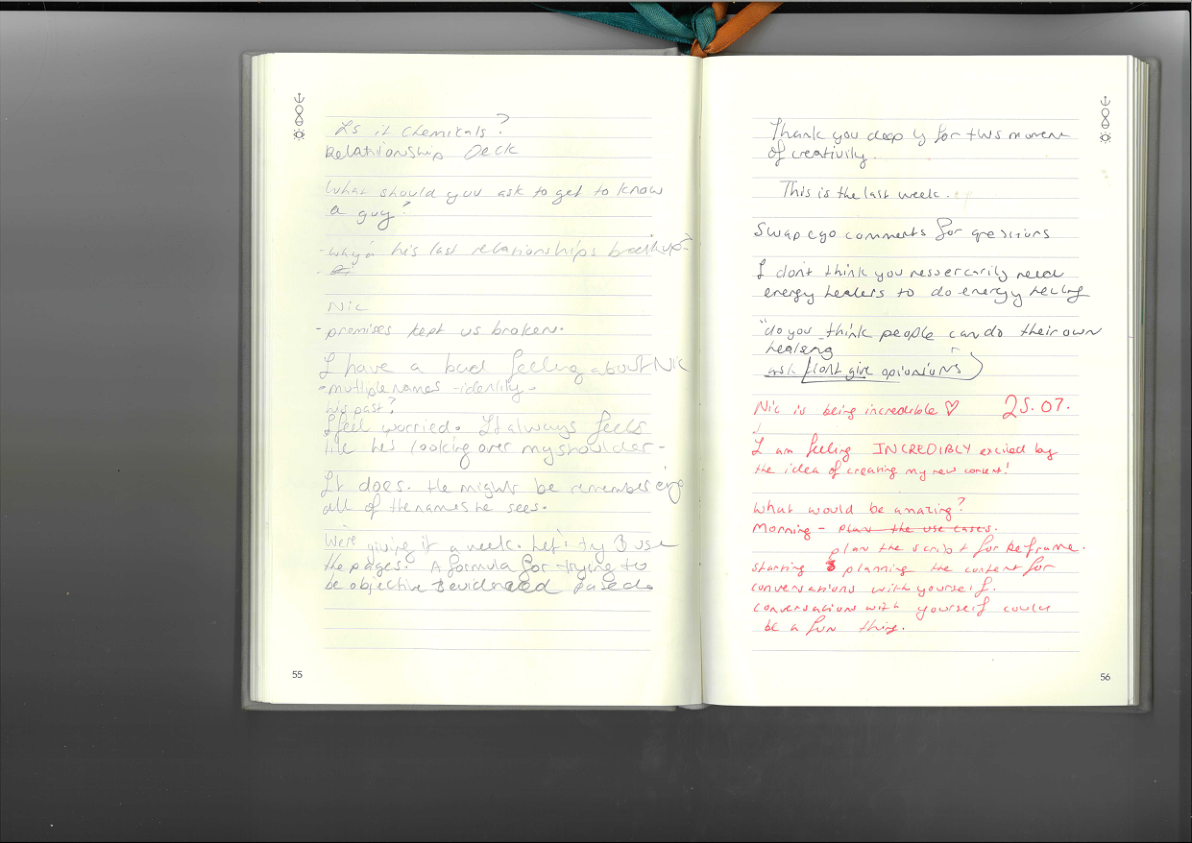 Is it Chemicals?
Relationship Deck
What should you ask to get to know
a guy?
- why? his last relationships breakup?
Nic
- promises kept us broken.
I have a bad feeling about Nic
- multiple names - identity -
his past?
I feel worried. It always feels
like he's looking over my shoulder -
It does. He might be remembering
all of the names he sees.
We're giving it a week. Let's try & use
the pages. A formula for trying to
be objective & based
55
Thank you deep y for this moment
of creativity.
This is the last week.
Swap ego comments for questions
I don't think you nessercarily need
energy healers to do energy healing
"do you think people can do their own
healing
ask / don't give opionions)
Nic is being incredible ♡ 25.07.
I am feeling INCREDIBLY excited by
the idea of creating my new content!
What would be amazing?
Morning - plan the use cases.
plan the script for Reframe.
starting planning the content for
conversations with yourself.
conversations with yourself could
be a fun thing.
56